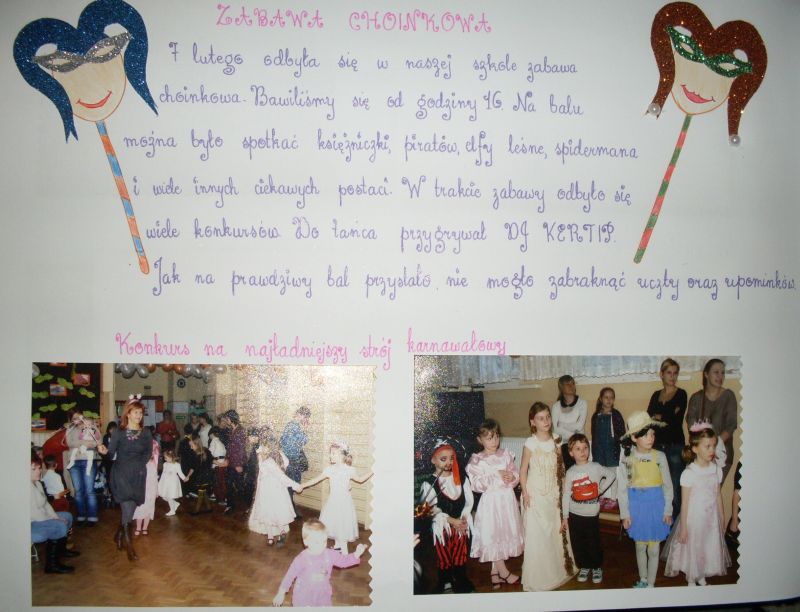 ZABAWA CHOINKOWA
7 lutego odbyła się w naszej szkole zabawa
choinkowa. Bawiliśmy się od godziny 16. Na balu
można było spotkać księżniczki, piratów, elfy leśne, spidermana
i wiele innych ciekawych postaci. W trakcie zabawy odbyło się
wiele konkursów. Do tańca przygrywał DJ KERTIP.
Jak na prawdziwy bal przystało, nie mogło zabraknąć uczty oraz upominków.
Konkurs na najładniejszy strój karnawałowy